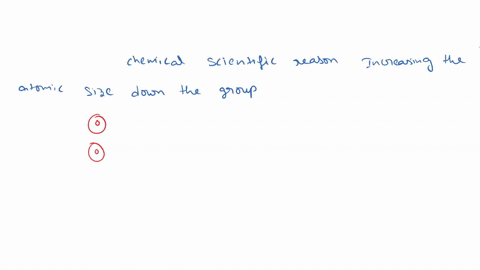 chemical scientific reason Increasing the
atomic size down the group